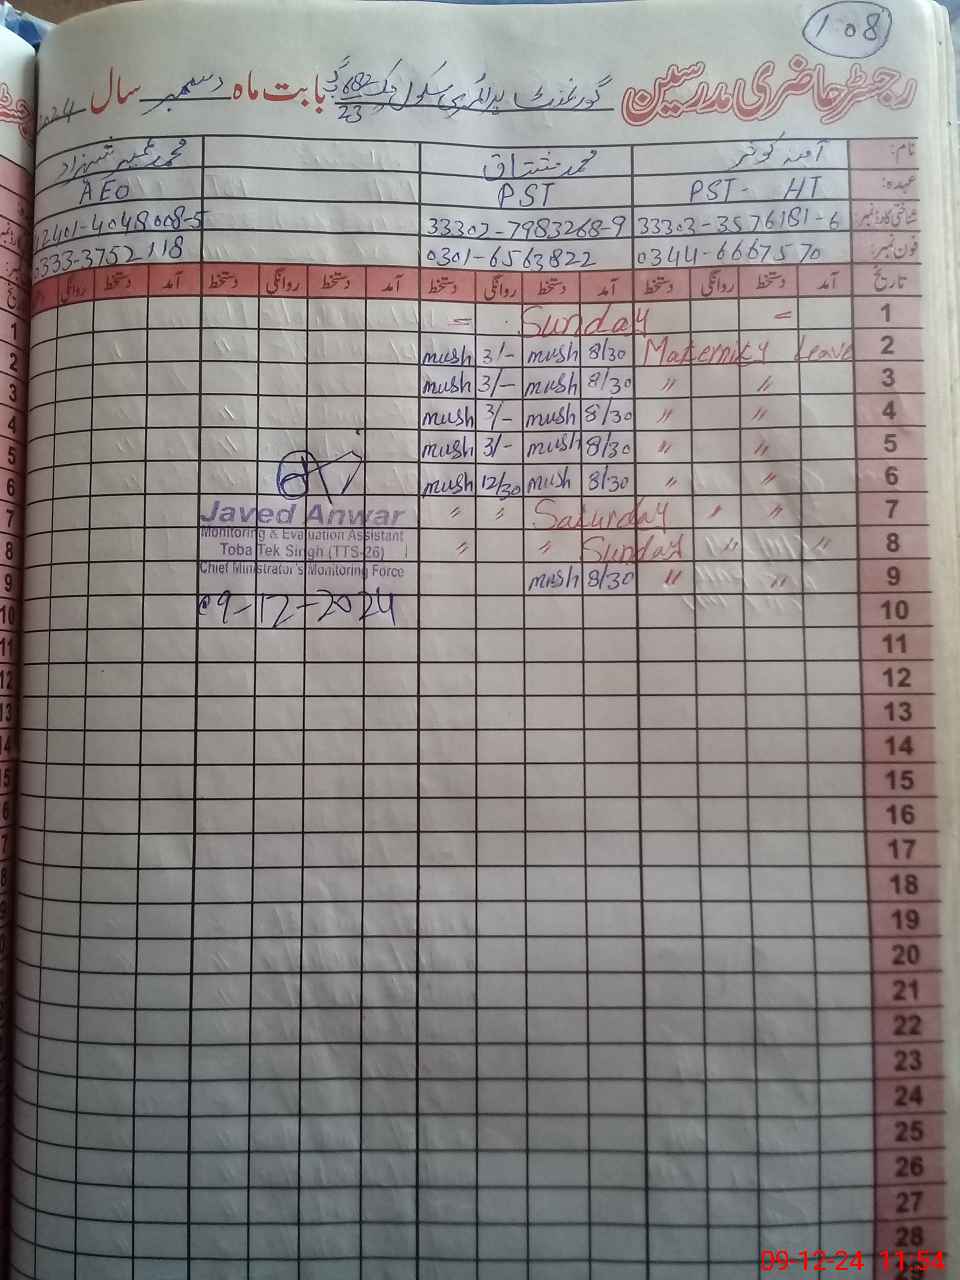 108
رجسٹر حاضری مدرسین گورنمنٹ پرائمری سکول چک 682/23 گ ب بابت ماہ دسمبر سال 2024
نام: آمنہ کوثر محمد مشتاق محمد عمیر شہزاد
عہدہ: PST- HT PST AEO
شناختی کارڈ نمبر: 33303-3576181-6 33302-7983268-9 32401-4048008-5
فون نمبر: 0344-6667570 0301-6563822 0333-3752118
تاریخ آمد دستخط روانگی دستخط آمد دستخط روانگی دستخط آمد دستخط روانگی دستخط آمد دستخط روانگی
1 = Sunday =
2 Maternity Leave 8/30 mush 3/- mush
3 " " 8/30 mush 3/- mush
4 " " 8/30 mush 3/- mush
5 " " 8/30 mush 3/- mush
6 " " 8/30 mush 12/30 mush
7 " " Saturday " "
8 " " Sunday " "
9 " " 8/30 mush
Javed Anwar
Monitoring & Evaluation Assistant
Toba Tek Singh (TTS-26)
Chief Minister's Monitoring Force
09-12-2024
10
11
12
13
14
15
16
17
18
19
20
21
22
23
24
25
26
27
28
09-12-24 11:54